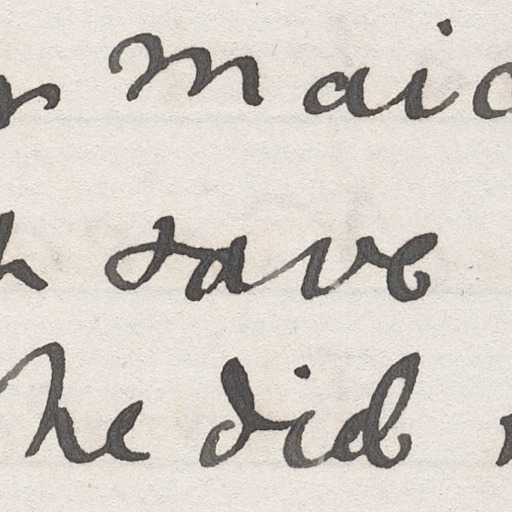 maid
save
he did